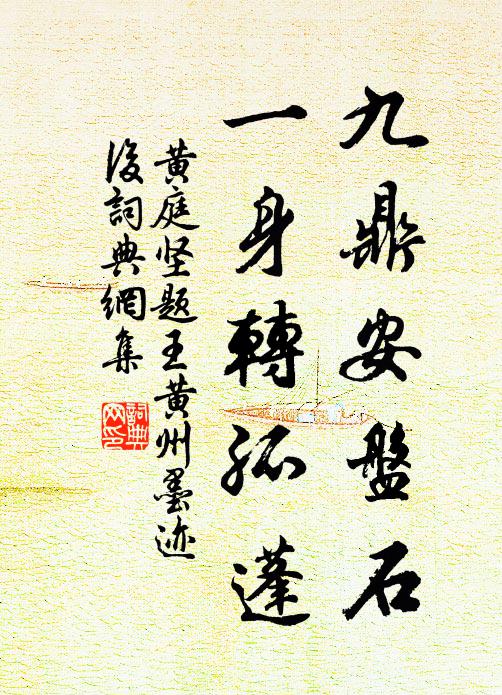 九鼎安盤石
一身轉孤蓬
黄庭坚题王黄州墨迹
後詞典網集
詞典網印